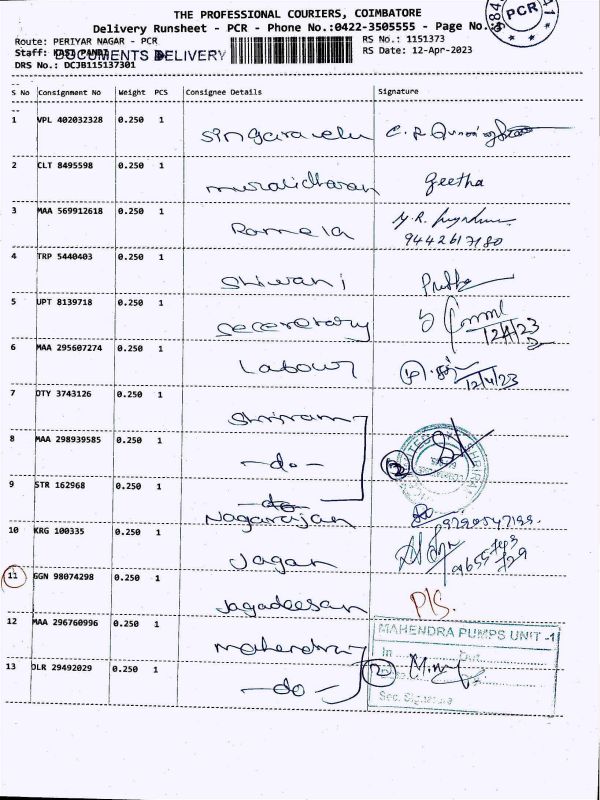 THE PROFESSIONAL COURIERS, COIMBATORE
Delivery Runsheet - PCR - Phone No.:0422-3505555 - Page No.:
PCR
Route: PERIYAR NAGAR - PCR
RS No.: 1151373
Staff: KASI PANDI
DOCUMENTS DELIVERY
RS Date: 12-Apr-2023
DRS No.: DCJB115137301
S No Consignment No Weight PCS Consignee Details Signature
1 VPL 402032328 0.250 1
Singaravelu
2 CLT 8495598 0.250 1
muralidharan geetha
3 MAA 569912618 0.250 1
Ramela
9442617180
4 TRP 5440403 0.250 1
Shiwani
5 UPT 8139718 0.250 1
Seceretary 12/4/23
6 MAA 295607274 0.250 1
Labour 12/4/23
7 DTY 3743126 0.250 1
Shriram
8 MAA 298939585 0.250 1
-do- 2
9 STR 162968 0.250 1
Nagarajan
10 KRG 100335 0.250 1
Jagan
11 GGN 98074298 0.250 1
Jagadeesan P/S.
12 MAA 296760996 0.250 1
Mahendra
MAHENDRA PUMPS UNIT -1
In Out
13 DLR 29492029 0.250 1
-do- 2
Sec. Signature